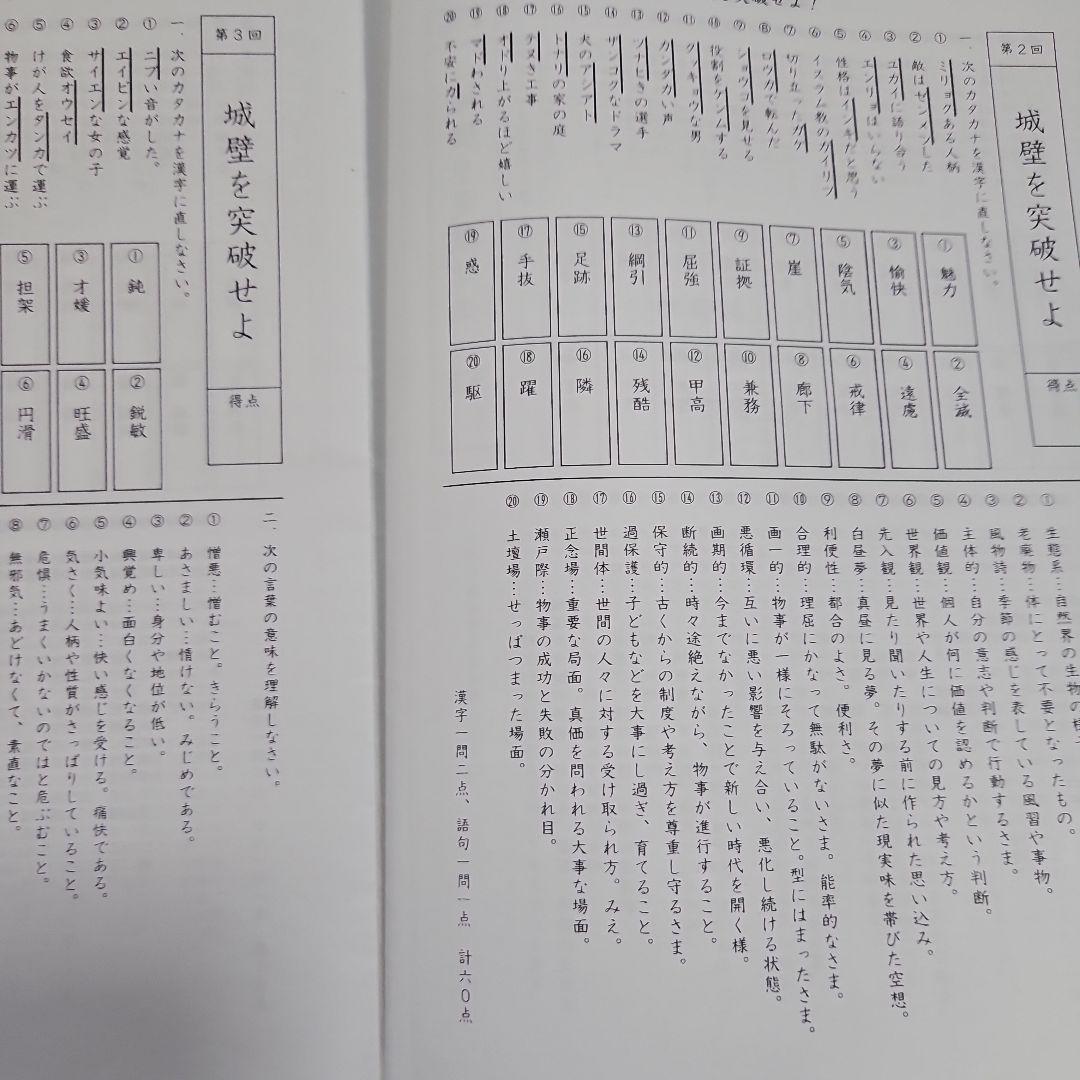 突破せよ！
第２回
城壁を突破せよ
得点
一．次のカタカナを漢字に直しなさい。
① ミリョクある人柄
② 敵はゼンメツした
③ ユカイに語り合う
④ エンリョはいらない
⑤ 性格はインキだと思う
⑥ イスラム教のカイリツ
⑦ 切り立ったガケ
⑧ ロウカで転んだ
⑨ ショウコを見せる
⑩ 役割をケンムする
⑪ クッキョウな男
⑫ カンダカい声
⑬ ツナヒきの選手
⑭ ザンコクなドラマ
⑮ 犬のアシアト
⑯ トナリの家の庭
⑰ テヌき工事
⑱ オドり上がるほど嬉しい
⑲ マドわされる
⑳ 不安にカられる
① 魅力
② 全滅
③ 愉快
④ 遠慮
⑤ 陰気
⑥ 戒律
⑦ 崖
⑧ 廊下
⑨ 証拠
⑩ 兼務
⑪ 屈強
⑫ 甲高
⑬ 綱引
⑭ 残酷
⑮ 足跡
⑯ 隣
⑰ 手抜
⑱ 躍
⑲ 惑
⑳ 駆
① 生態系…自然界の生物の様
② 老廃物…体にとって不要となったもの。
③ 風物詩…季節の感じを表している風習や事物。
④ 主体的…自分の意志や判断で行動するさま。
⑤ 価値観…個人が何に価値を認めるかという判断。
⑥ 世界観…世界や人生についての見方や考え方。
⑦ 先入観…見たり聞いたりする前に作られた思い込み。
⑧ 白昼夢…真昼に見る夢。その夢に似た現実味を帯びた空想。
⑨ 利便性…都合のよさ。便利さ。
⑩ 合理的…理屈にかなって無駄がないさま。能率的なさま。
⑪ 画一的…物事が一様にそろっていること。型にはまったさま。
⑫ 悪循環…互いに悪い影響を与え合い、悪化し続ける状態。
⑬ 画期的…今までなかったことで新しい時代を開く様。
⑭ 断続的…時々途絶えながら、物事が進行すること。
⑮ 保守的…古くからの制度や考え方を尊重し守るさま。
⑯ 過保護…子どもなどを大事にし過ぎ、育てること。
⑰ 世間体…世間の人々に対する受け取られ方。みえ。
⑱ 正念場…重要な局面。真価を問われる大事な場面。
⑲ 瀬戸際…物事の成功と失敗の分かれ目。
⑳ 土壇場…せっぱつまった場面。
漢字一問二点、語句一問一点 計六０点
第３回
城壁を突破せよ
得点
一．次のカタカナを漢字に直しなさい。
① ニブい音がした。
② エイビンな感覚
③ サイエンな女の子
④ 食欲オウセイ
⑤ けが人をタンカで運ぶ
⑥ 物事がエンカツに運ぶ
① 鈍
② 鋭敏
③ 才媛
④ 旺盛
⑤ 担架
⑥ 円滑
二．次の言葉の意味を理解しなさい。
① 憎悪…憎むこと。きらうこと。
② あさましい…情けない。みじめである。
③ 卑しい…身分や地位が低い。
④ 興覚め…面白くなくなること。
⑤ 小気味よい…快い感じを受ける。痛快である。
⑥ 気さく…人柄や性質がさっぱりしていること。
⑦ 危惧…うまくいかないのではと危ぶむこと。
⑧ 無邪気…あどけなくて、素直なこと。